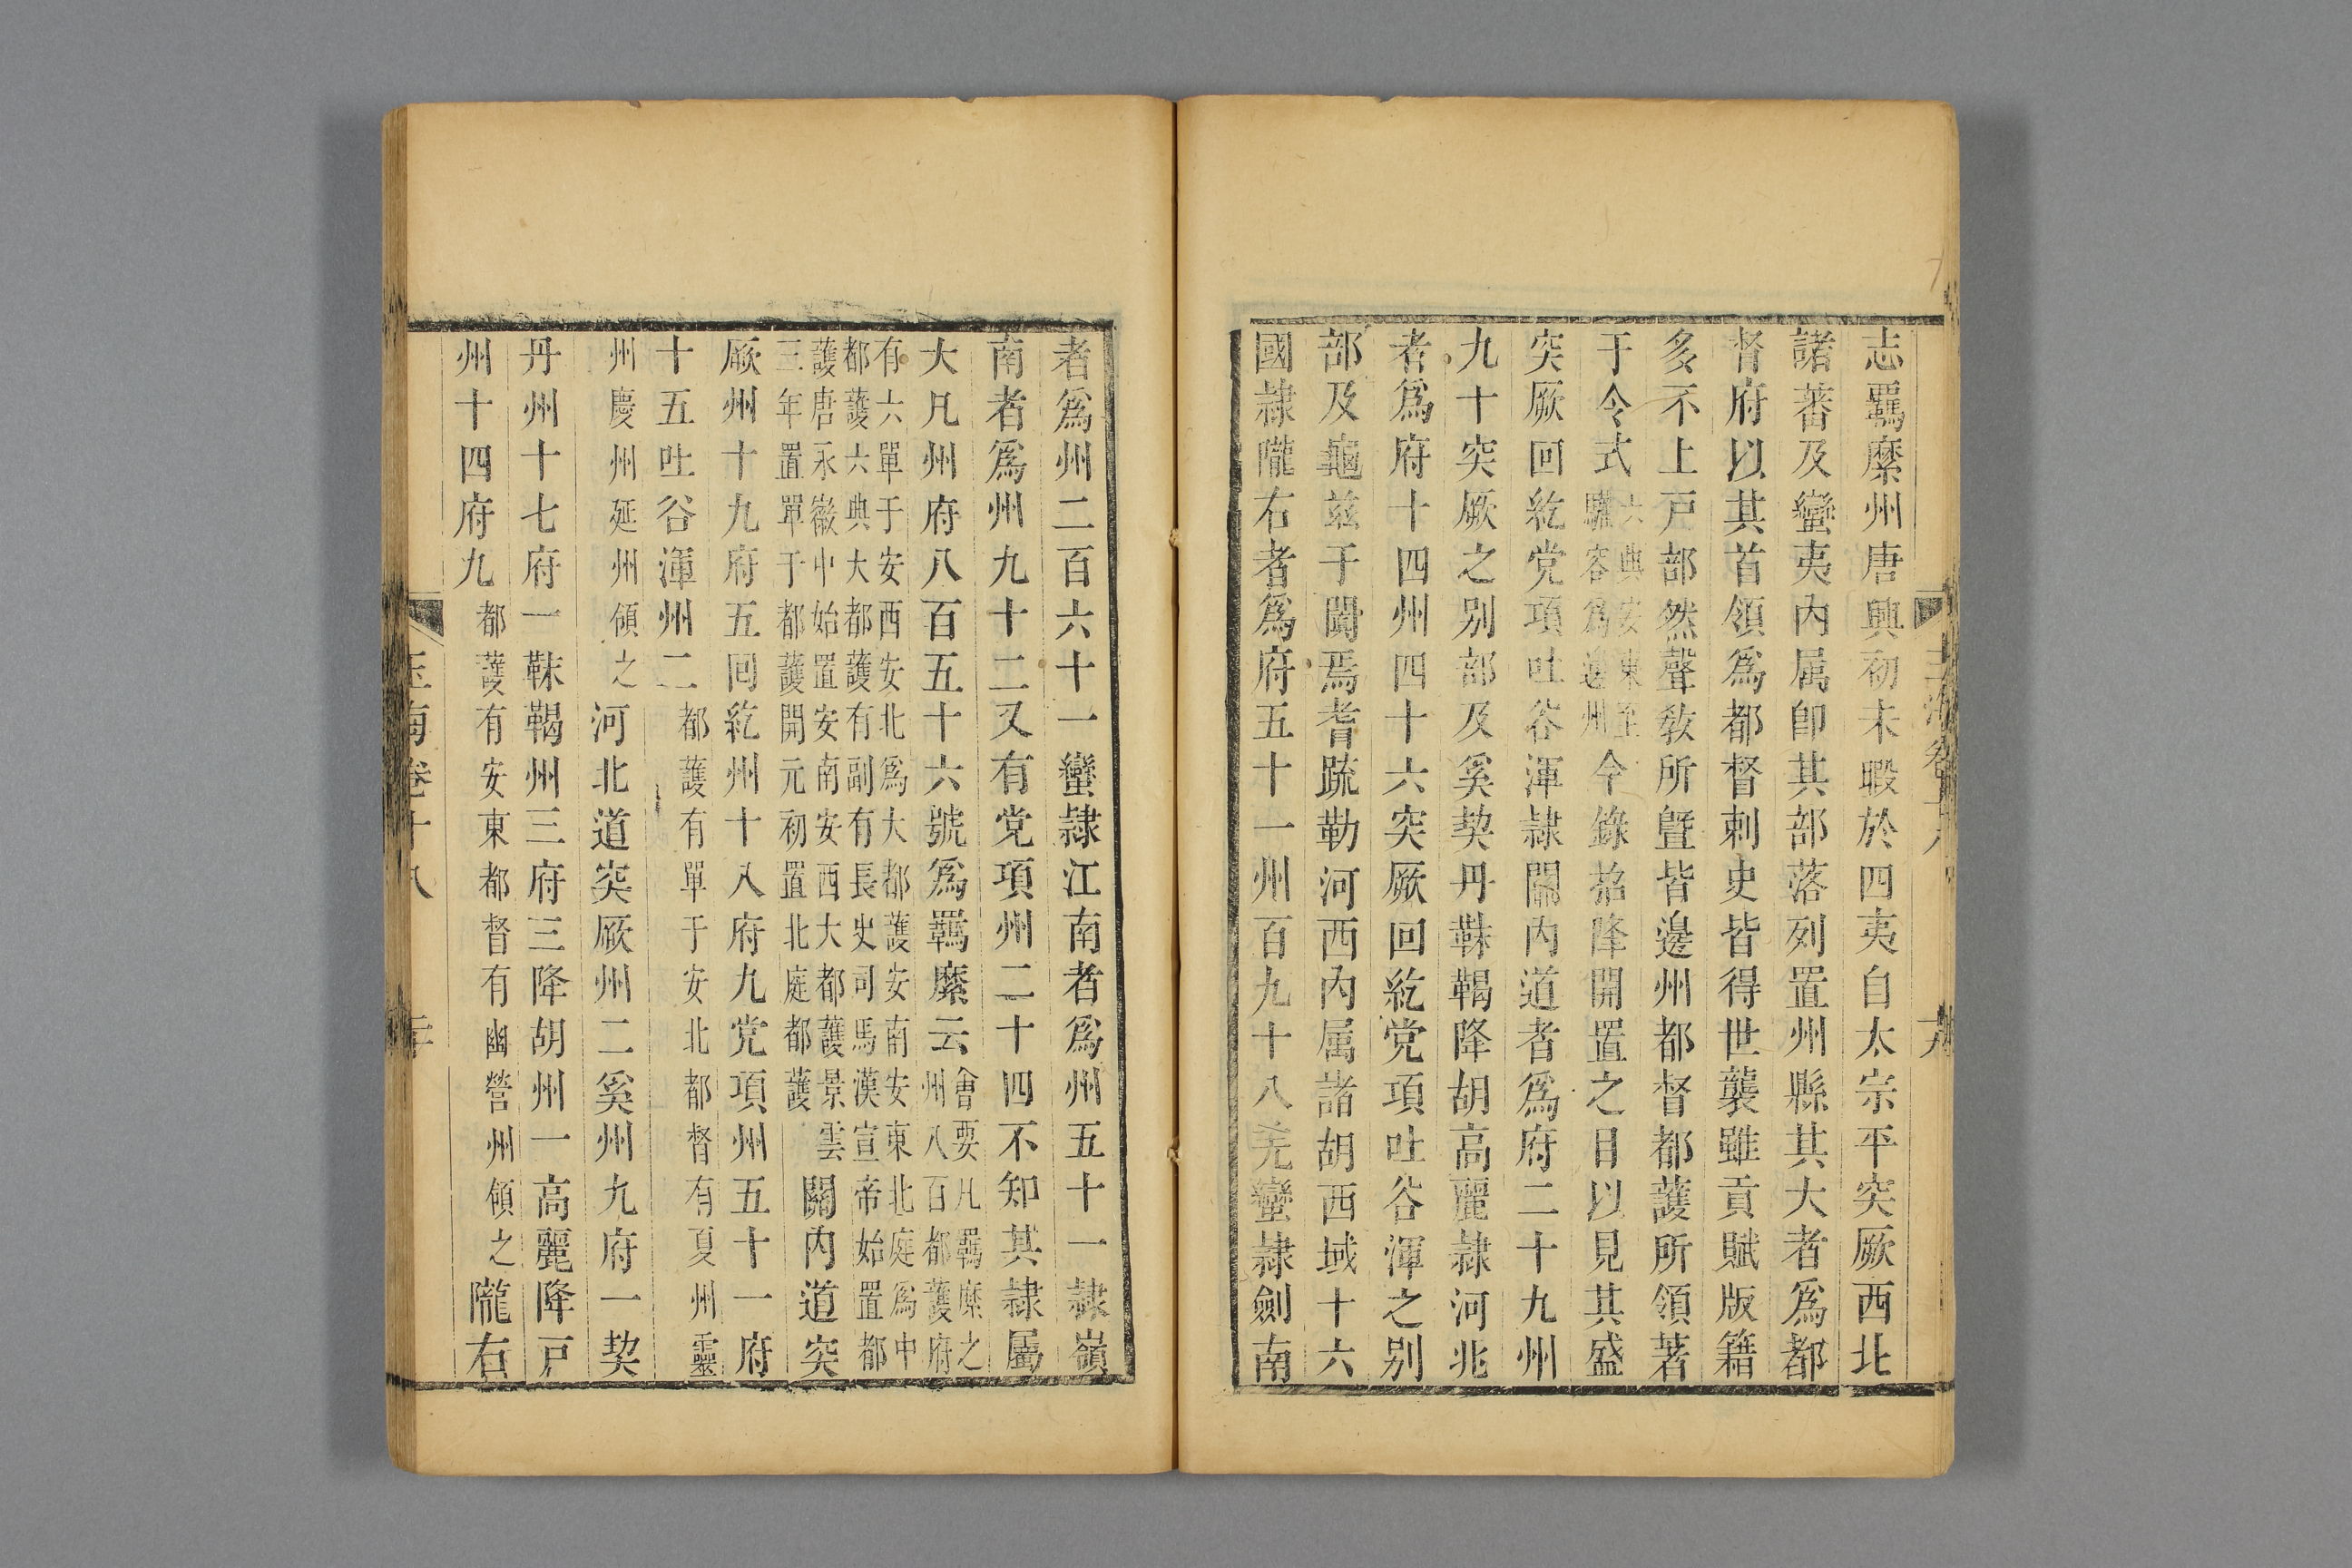 志羈縻州唐興初未暇於四夷自太宗平突厥西北
諸蕃及蠻夷內属卽其部落列置州縣其大者爲都
督府以其首領爲都督刺史皆得世襲雖貢賦版籍
多不上戸部然聲敎所曁皆邊州都督都護所領著
于令式六典安東至驩容爲邊州今錄招降開置之目以見其盛
突厥回紇党項吐谷渾隷關內道者爲府二十九州
九十突厥之别部及奚契丹靺鞨降胡高麗隷河北
者爲府十四州四十六突厥回紇党項吐谷渾之别
部及龜兹于闐焉耆疏勒河西內属諸胡西域十六
國隷隴右者爲府五十一州百九十八羌蠻隷劍南
者爲州二百六十一蠻隷江南者爲州五十一隷嶺
南者爲州九十二又有党項州二十四不知其隷屬
大凡州府八百五十六號爲羈縻云會要凡羈縻之州八百都護府
有六單于安西安北爲大都護安南安東北庭爲中
都護六典大都護有副有長史司馬漢宣帝始置都
護唐永徽中始置安南安西大都護景雲
三年置單于都護開元初置北庭都護關內道突
厥州十九府五回紇州十八府九党項州五十一府
十五吐谷渾州二都護有單于安北都督有夏州靈
州慶州延州領之河北道突厥州二奚州九府一契
丹州十七府一靺鞨州三府三降胡州一高麗降戸
州十四府九都護有安東都督有幽營州領之隴右
玉海卷十八
二十